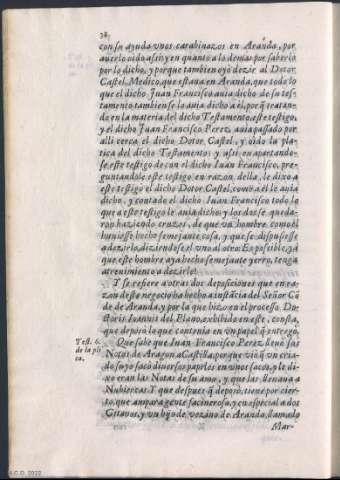 38.
con su ayuda vnos carabinazos en Arãda, por
auerlo oido assi: y en quanto a lo demas por saberlo
por lo dicho, y porque tambien oyò dezir al Dotor
Castel, Medico, que estaua en Aranda, que todo lo
que el dicho Juan Francisco auia dicho de su tes-
tamento tambien se lo auia dicho a èl, porq̃ tratan-
do en la materia del dicho Testamento, este testigo,
y el dicho Juan Francisco Perez, auia passado por
alli cerca el dicho Dotor Castel, y oìdo la pla-
tica del dicho Testamento: y assi en apartando-
se este testigo de con el dicho Juan Francisco, pre-
guntandole este testigo en razon della, le dixo a
este testigo el dicho Dotor Castel, como a èl le auia
dicho, y contado el dicho Juan Francisco todo lo
que a este testigo le auia dicho: y los dos se queda-
ron haziendo cruzes, de que vn hombre como èl
huuiesse hecho semejante cosa, y que se dispusiesse
a dezirlo, diziendose el vno al otro: Es possible, ya
que este hombre aya hecho semejante yerro, tenga
atreuimiento a dezirle!
Y se refiere a otras dos deposiciones que en ra-
zon deste negocio ha hecho a instãcia del Señor Cõ
de de Aranda, y por la que hizo en el processo. Do-
ctoris Ioannis del Plano, exhibido en este, consta,
que depuso lo que contenia en vn papel q̃ entregò.
Test. 6.
de la pli
ca.
Que sabe que Juan Francisco Perez lleuò sus
Notas de Aragon a Castilla, porque viò q̃ vn cria-
do suyo sacò diuersos papeles en vnos sacos, y le di-
xeran las Notas de su amo, y que las lleuaua a
Nubiercas. Y que despues q̃ depuso, tiene por cier-
to, que ampara gente facinerosa, y en especial a dos
Gitanos, y vn hijo de vezino de Aranda, llamado
Mar-